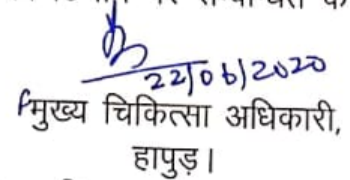 22/06/2020
मुख्य चिकित्सा अधिकारी,
हापुड़।